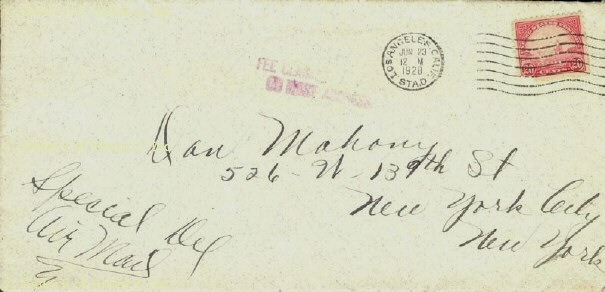 LOS ANGELES, CALIF.
JUN 23
12 M
1928
STA.D
FEE CLAIMED
Dan Mahony
526-W-139th St
New York City
New York
Special Del
Air Mail